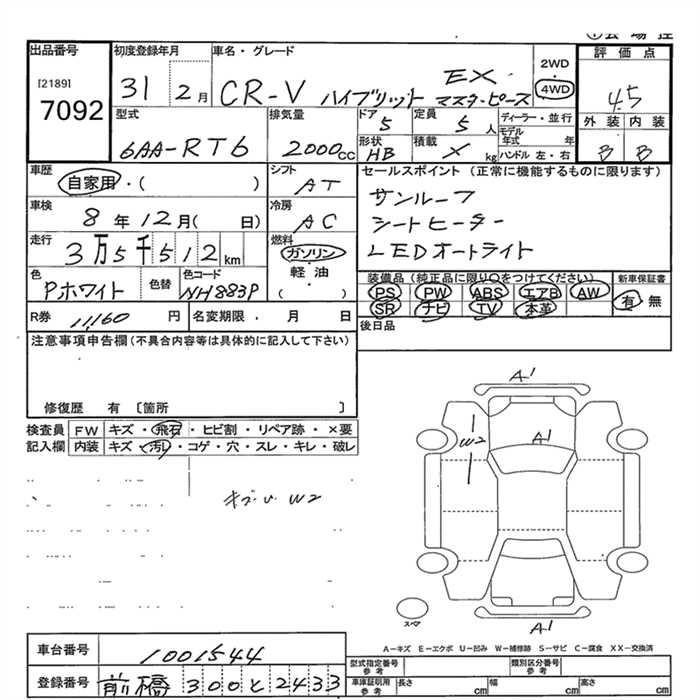 出品番号
[2189]
7092
初度登録年月
31
2月
車名・グレード
CR-V ハイブリット EX マスターピース
2WD
4WD
評価点
4.5
外装 内装
B B
型式
6AA-RT6
排気量
2000cc
ドア
5
定員
5人
形状
HB
積載
× kg
ディーラー・並行
モデル年式 年
ハンドル 左・右
車歴
自家用・( )
シフト
AT
セールスポイント(正常に機能するものに限ります)
サンルーフ
シートヒーター
LEDオートライト
車検
8年12月( 日)
冷房
AC
走行
3万5千512km
燃料
ガソリン
軽・油
( ・ )
色
Pホワイト
色替
色コード
NH883P
装備品(純正品に限り○をつけてください)
PS PW ABS エアB AW
SR ナビ TV 本革
新車保証書
有 無
R券
11,160円
名変期限 ・ 月 日
後日品
注意事項申告欄(不具合内容等は具体的に記入して下さい)
修復歴 有 〔箇所 〕
検査員 FW キズ・飛石・ヒビ割・リペア跡・×要
記入欄 内装 キズ・汚レ・コゲ・穴・スレ・キレ・破レ
W2
A1
W2
A1
スペア
A1
A-キズ E-エクボ U-凹み W-補修跡 S-サビ C-腐食 XX-交換済
車台番号
1001544
登録番号
前橋 300 と 2433
型式指定番号 参考
類別区分番号 参考
車庫証明用 参考
長さ cm 幅 cm 高さ cm